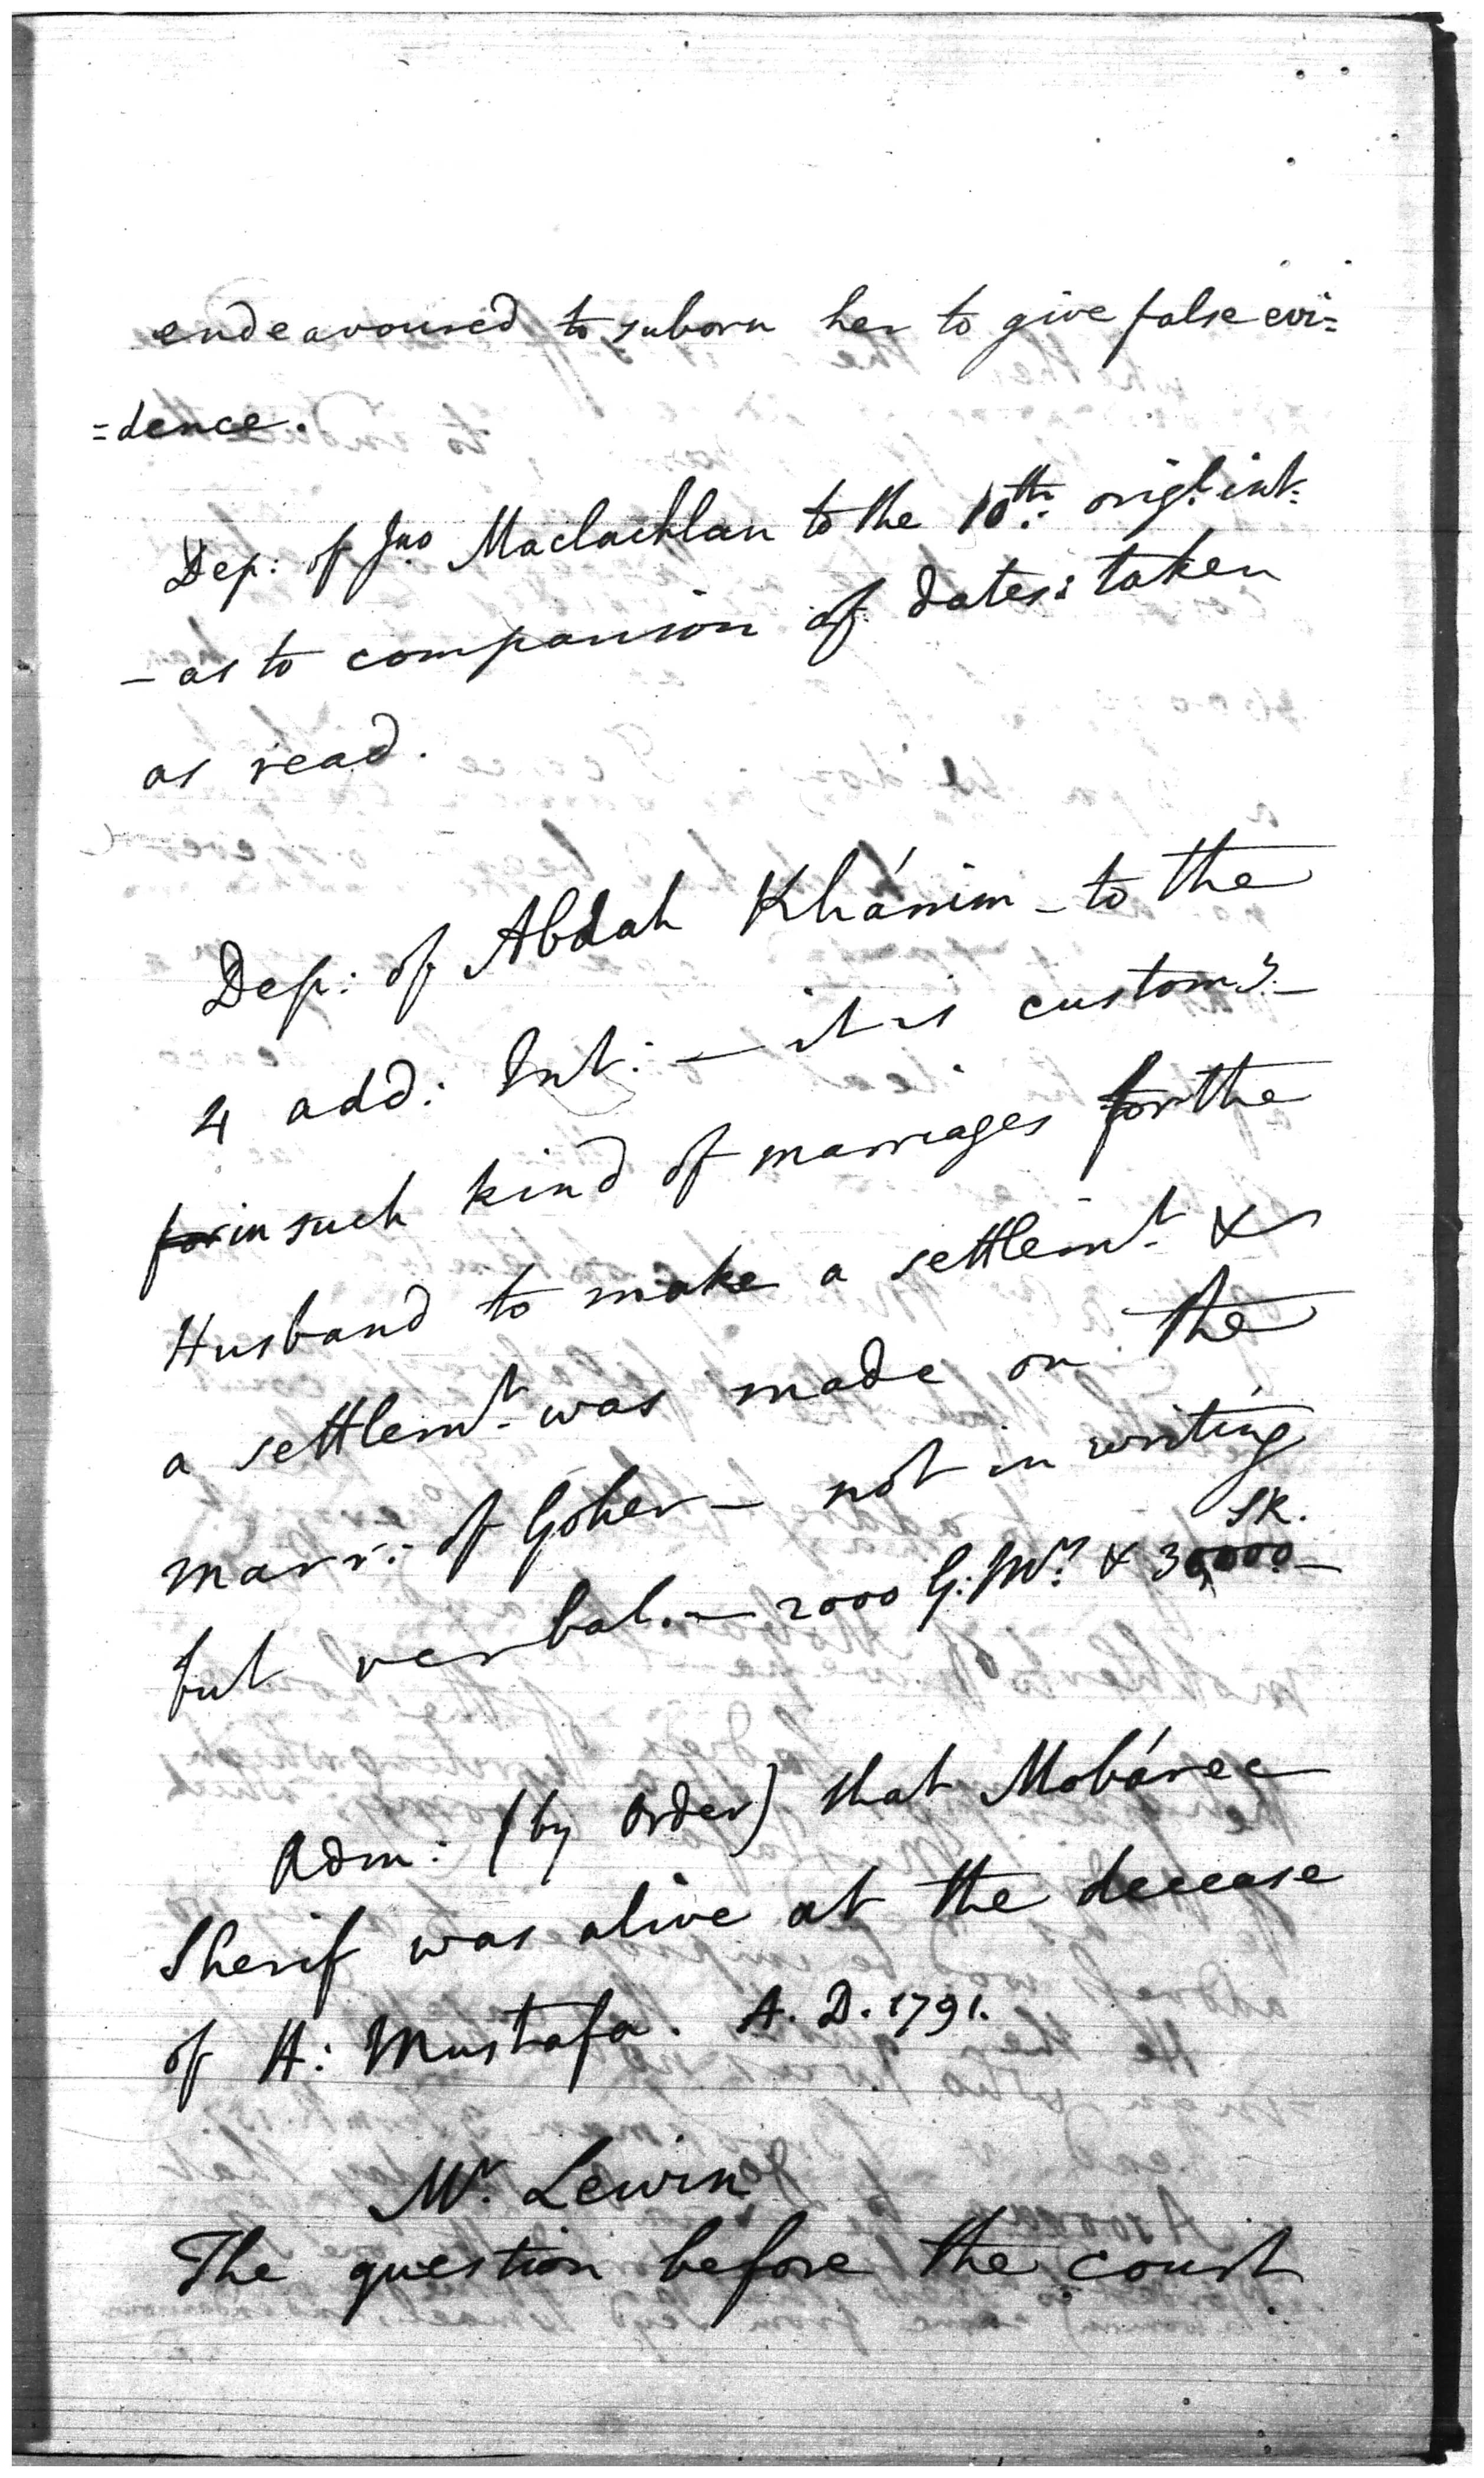 endeavoured to suborn her to give false evi=
=dence.
Dep: of Jno Maclachlan to the 10th: origl. int:
- as to comparison of dates: taken
as read.
Dep: of Abdah Khánim - to the
4 add: Int: - it is customy. -
for in such kind of marriages for the
Husband to make a settlemt. &
a settlemt. was made on the
marr: of Goher - not in writing
but verbal. - 2000 G: Mrs. & 30,000 -
SR.
Adm: (by order) that Mobárec
Sherif was alive at the decease
of H: Mustafa. A. D. 1791.
Mr. Lewin
The question before the court